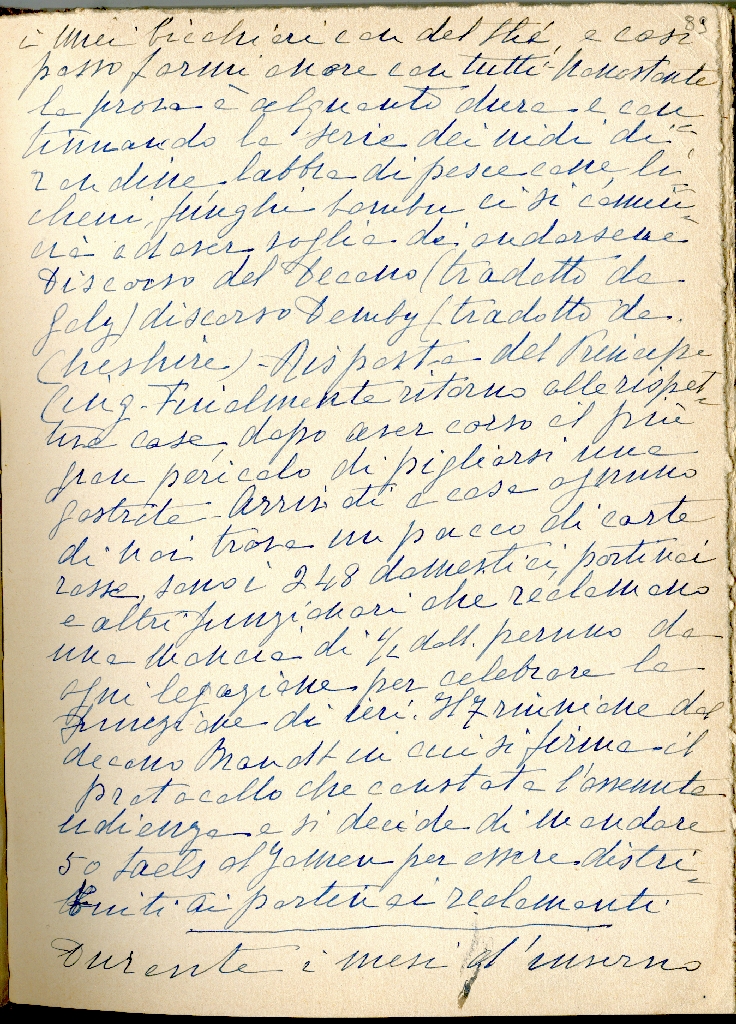 89
i miei bicchieri con del thé, e così
posso farmi onore con tutti - Nonostante
la prova è alquanto dura e con-
tinuando la serie dei nidi di
rondine, labbra di pesce cane, li-
cheni, funghi bambù ci si comin-
cia ad aver voglia di andarsene
Discorso del Decano (tradotto da
Gely) discorso Demby (tradotto da
Cheshire) - Risposta del Principe
Cing. Finalmente ritorno alle rispet-
tive case, dopo aver corso il più
gran pericolo di pigliarsi una
gastrite - Arrivati a casa ognuno
di noi trova un pacco di carte
rosse, sono i 248 domestici, portinai
e altri funzionari che reclamano
una mancia di ½ doll. peruno da
ogni legazione per celebrare la
funzione di ieri. Il 7 riunione dal
decano Brandt in cui si firma il
protocollo che constata l'avvenuta
udienza e si decide di mandare
50 taels al Yamen per essere distri-
buiti ai portinai reclamanti
Durante i mesi d'inverno